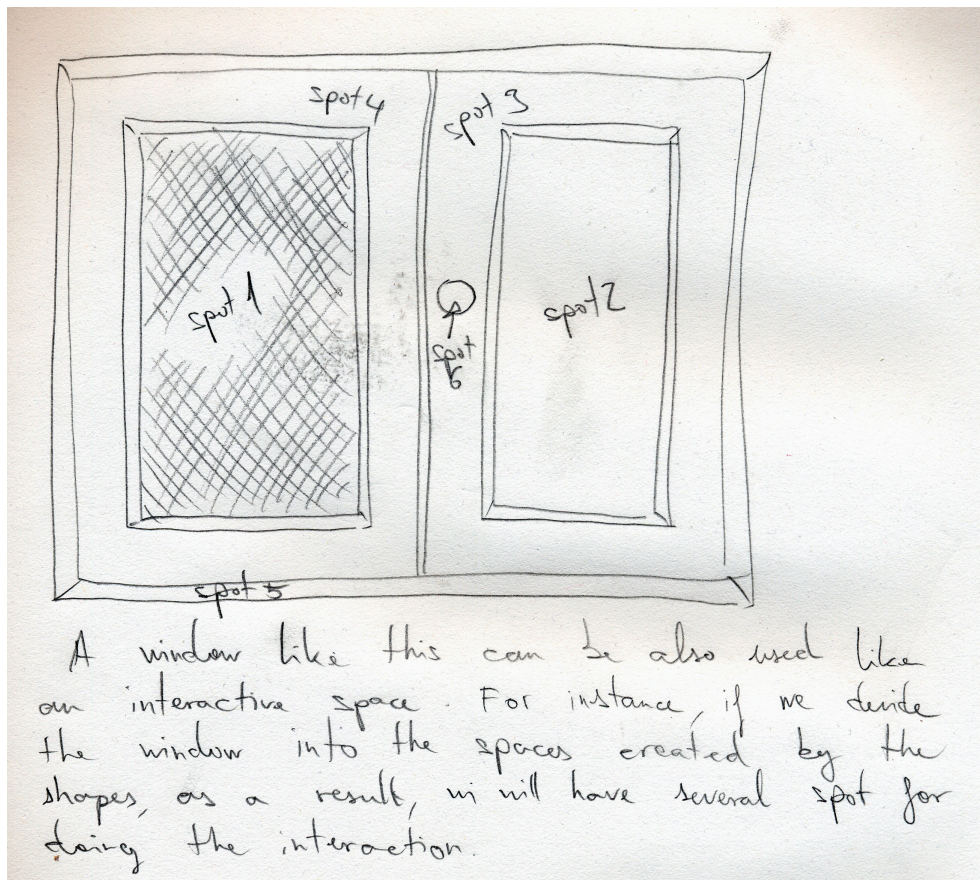 spot 4
spot 3
spot 1
spot 2
spot
6
spot 5
A window like this can be also used like
an interactive space. For instance, if we devide
the window into the spaces created by the
shapes, as a result, wi will have several spot for
doing the interaction.